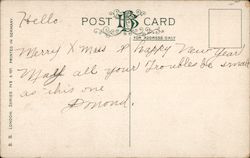 Hello
POST CARD
B
FOR ADDRESS ONLY
Merry Xmas & Happy New Year
May all your Troubles be small
as this one
B. B. LONDON. SERIES PRINTED IN GERMANY